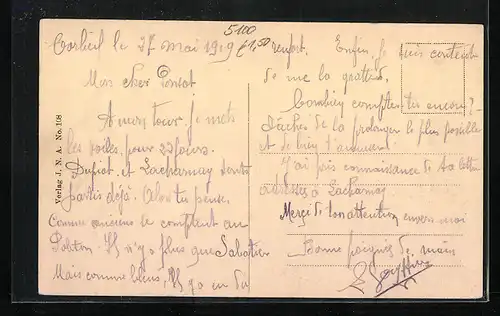 le 27 mai 1919
Mon cher
A mon tour je mets
les voiles pour 23 jours.
Dupiot et Lacharnay sont
partis déjà. Alors tu penses.
Comme anciens je complant au
Peloton. Il n'y a plus que Sabatier
Mais comme bleus, il y a eu du
renfort. Enfin je suis content
de me la gratter.
Combien comptes-tu encore ?
Tâches de la prolonger le plus possible
et de bien t'amuser.
J'ai pris connaissance de ta lettre
adressée à Lacharnay
Merci de ton attention envers moi
Bonne poignée de main
5100
£1,50
Verlag J. N. A. No. 108